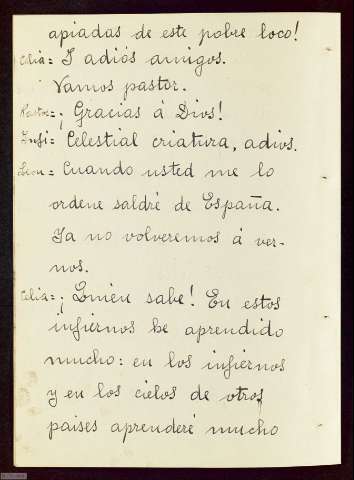 apiadas de este pobre loco!
Celia = Y adiós amigos.
Vamos pastor.
Pastor = ¡Gracias á Dios!
Infi = Celestial criatura, adios.
Leon = Cuando usted me lo
ordene saldré de España.
Ya no volveremos á ver-
nos.
Celia = ¡Quién sabe! En estos
infiernos he aprendido
mucho: en los infiernos
y en los cielos de otros
paises aprenderé mucho